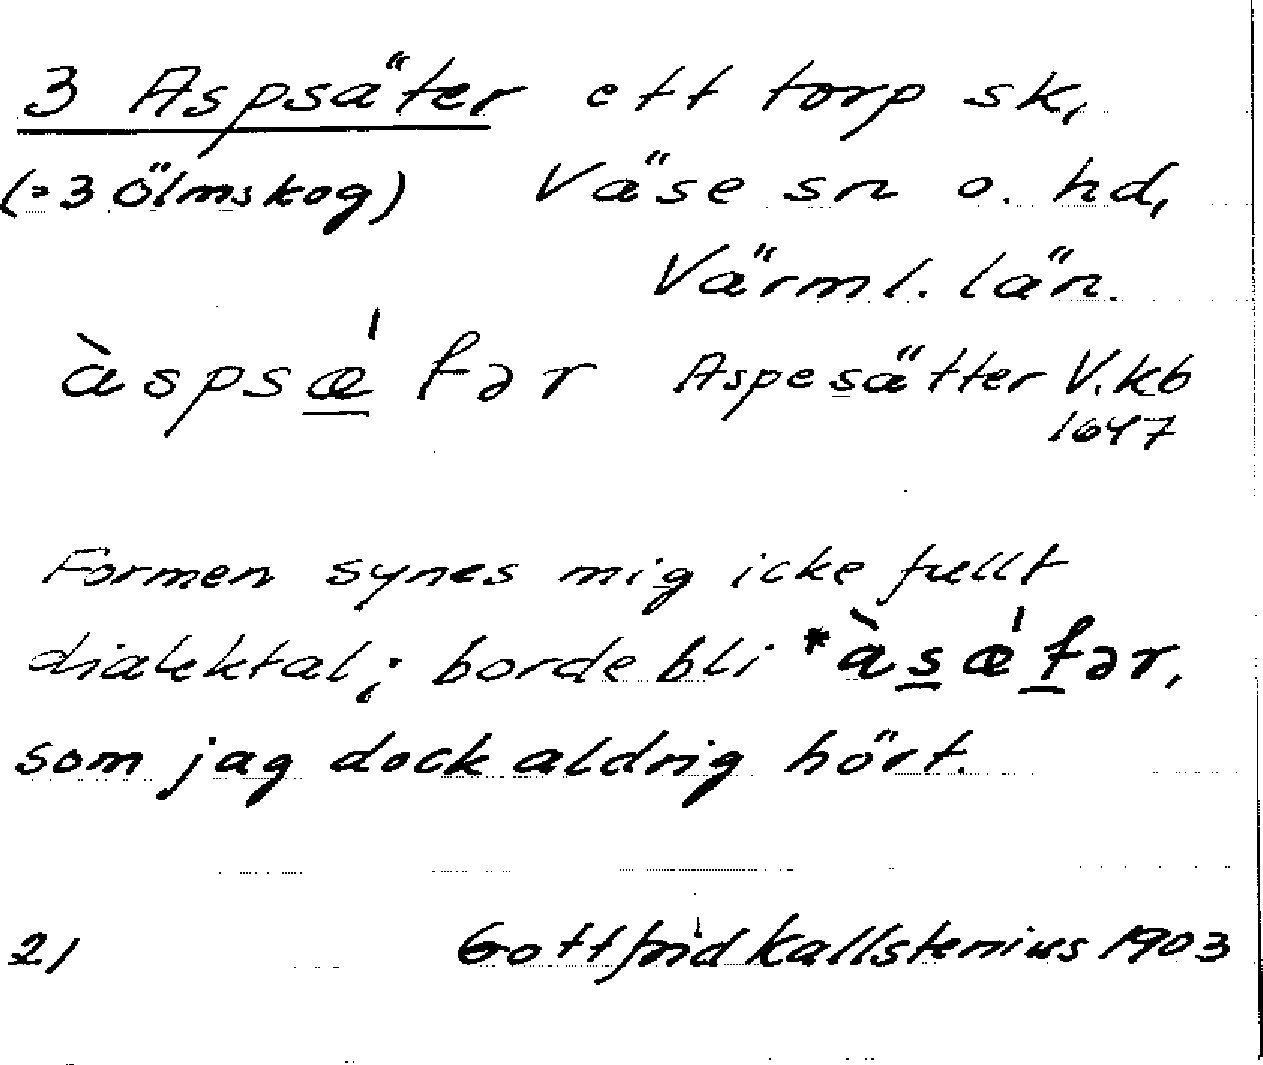 3 Aspsäter ett torp sk,
(=3 Ölmskog) Väse sn o. hd,
Värml. län.
àspsǽtər Aspesätter V.kb
1647
Formen synes mig icke fullt
dialektal; borde bli *àsǽtər,
som jag dock aldrig hört.
21 Gottfrid Kallstenius 1903